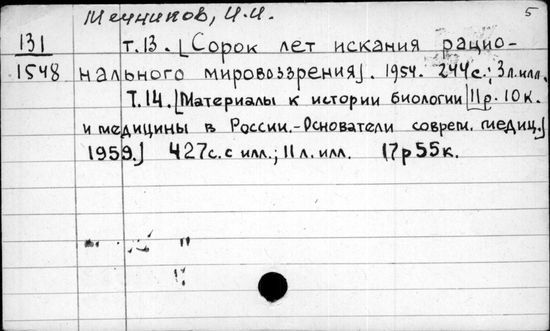 Мечников, И.И. 5
131 т.13. [Сорок лет искания рацио-
1548 нального мировоззрения]. 1954. 244с.; 3л.илл.
Т.14. [Материалы к истории биологии [11р.10к.
и медицины в России.-Основатели соврем. медиц.]
1959.] 427с. с илл.; 11 л. илл. 17р55к.